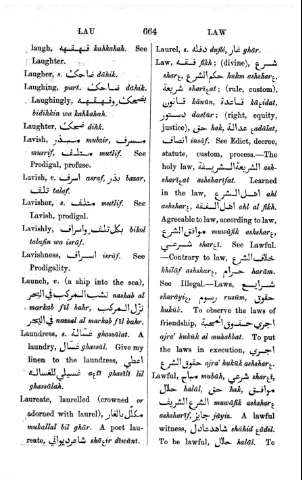 LAU 664 LAW
laugh, قهقهه kahkahah. See
Laughter.
Laugher, s. ضاحك dāhik.
Laughing, part. ضاحك dāhik.
Laughingly, بضحك وقهقهه
bidihkin wa kahkahah.
Laughter, ضحك dihk.
Lavish, مبذر mubair, مسرف
musrif, متلف mutlif. See
Prodigal, profuse.
Lavish, v. اسرف asraf, بذر bazar,
تلف talaf.
Lavisher, s. متلف mutlif. See
Lavish, prodigal.
Lavishly, بكل تلف واسراف bikol
talafin wa isrāf.
Lavishness, اسراف isrāf. See
Prodigality.
Launch, v. (a ship into the sea),
نشب المركب في البحر nashab al
markab fil bahr, نزل المركب
في البحر nazzal al markab fil bahr.
Laundress, s. غسالة ghassālat. A
laundry, غسال ghassāl. Give my
linen to the laundress, اعطي
غسيلي للغسالة
ghassālah.
Laureate, laurelled (crowned or
adorned with laurel), مكلل بالغار
mukallal bil ghār. A poet lau-
reate, شاعر ديواني
Laurel, s. دفله daflī, غار ghār.
Law, فقه fikh; (divine), شرع
حكم الشرع hukm
شريعة (rule, custom),
قانون kānūn, قاعدة
دستور dastur; (right, equity,
justice), حق hak, عدالة
انصاف insāf. See Edict, decree,
statute, custom, process.—The
holy law, الشريعة الشريفة
Learned
in the law, اهل الشرع
اهل الفقه ahl al fikh.
Agreeable to law, according to law,
موافق الشرع muwāfik
شرعي See Lawful.
—Contrary to law, خلاف الشرع
khilāf حرام harām.
See Illegal.—Laws, شرايع
رسوم rusōm, حقوق
hukūk. To observe the laws of
friendship, اجري حقوق المحبة
ajra' hukūk al muhabbat. To put
the laws in execution, اجري
حقوق الشرع ajra' hukūk
Lawful, مباح mubāh, شرعي
حلال halāl, حق hak, موافق
الشرع الشريف muwāfik
جايز jāyiz. A lawful
witness, شاهد عادل shāhid
To be lawful, حلال halāl. To